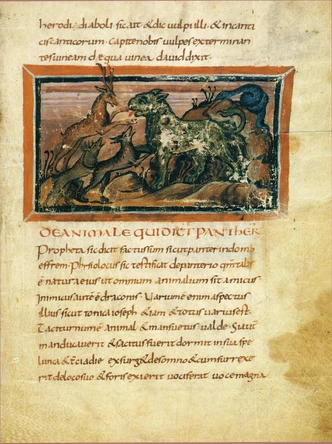 herodi, diaboli sic ait & dic vulpi illi, & in canti
cis canticorum. Capite nobis vulpes exterminan
tes vineam
DE ANIMALE QUI DICT PANTHER
Propheta sic dicit factus sum sicut panter in dom
effrem. Phisiologus sic testificat de
natura eius ut omnium animalium sit amicus
inimicus aute draconis. Varium enim aspectus
illius sicut tonica ioseph
Taciturnum animal & mansuetus valde. Si aut
manducaverit & saciatus fuerit dormit in sua spe
lunca & tercia die exsurg& de somno & cum surrexe
rit de loco suo & foris exierit vociferat voce magna